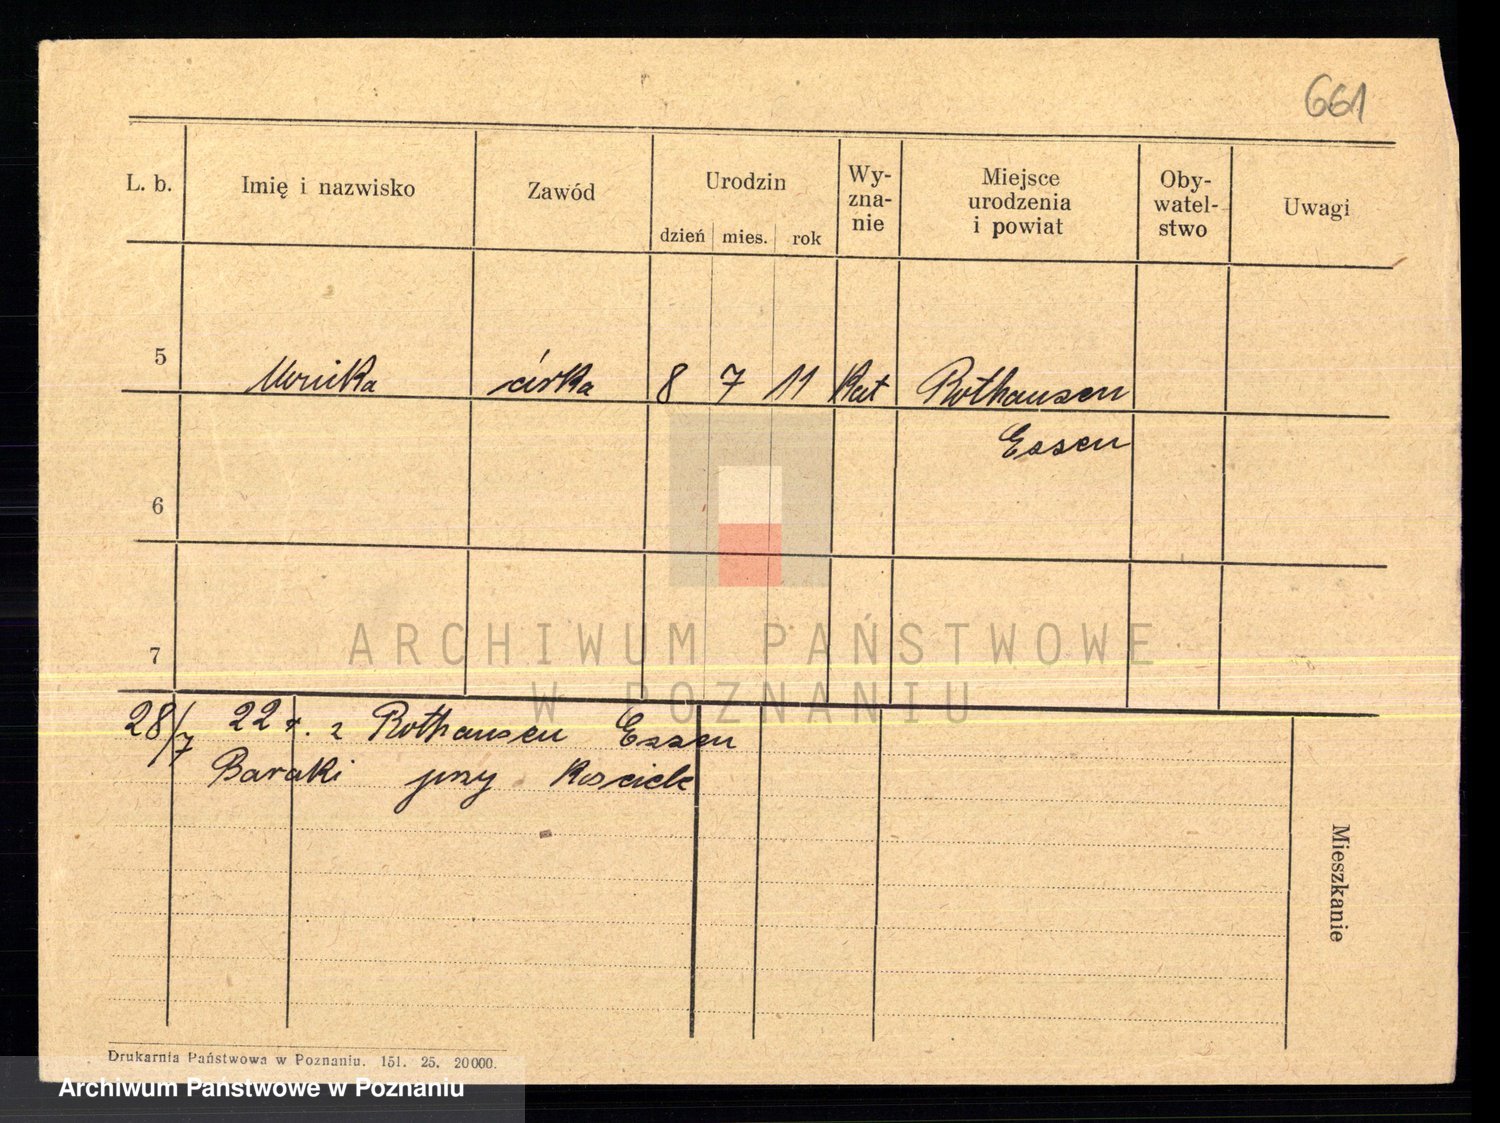 661
L. b. Imię i nazwisko Zawód Urodzin Wy- zna- nie Miejsce urodzenia i powiat Oby- watel- stwo Uwagi
dzień mies. rok
5 Monika córka 8 7 11 Kat Rothausen
Essen
6
7
ARCHIWUM PAŃSTWOWE
W POZNANIU
28/7 22 r. z Rothausen Essen
Baraki przy
Mieszkanie
Drukarnia Państwowa w Poznaniu. 151. 25. 20000.
Archiwum Państwowe w Poznaniu